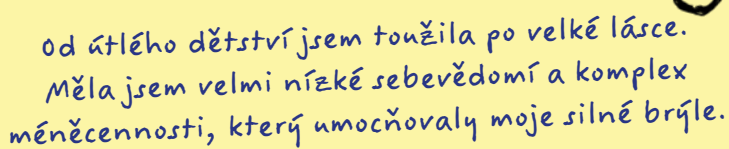 od útlého dětství jsem toužila po velké lásce.
Měla jsem velmi nízké sebevědomí a komplex
méněcennosti, který umocňovaly moje silné brýle.